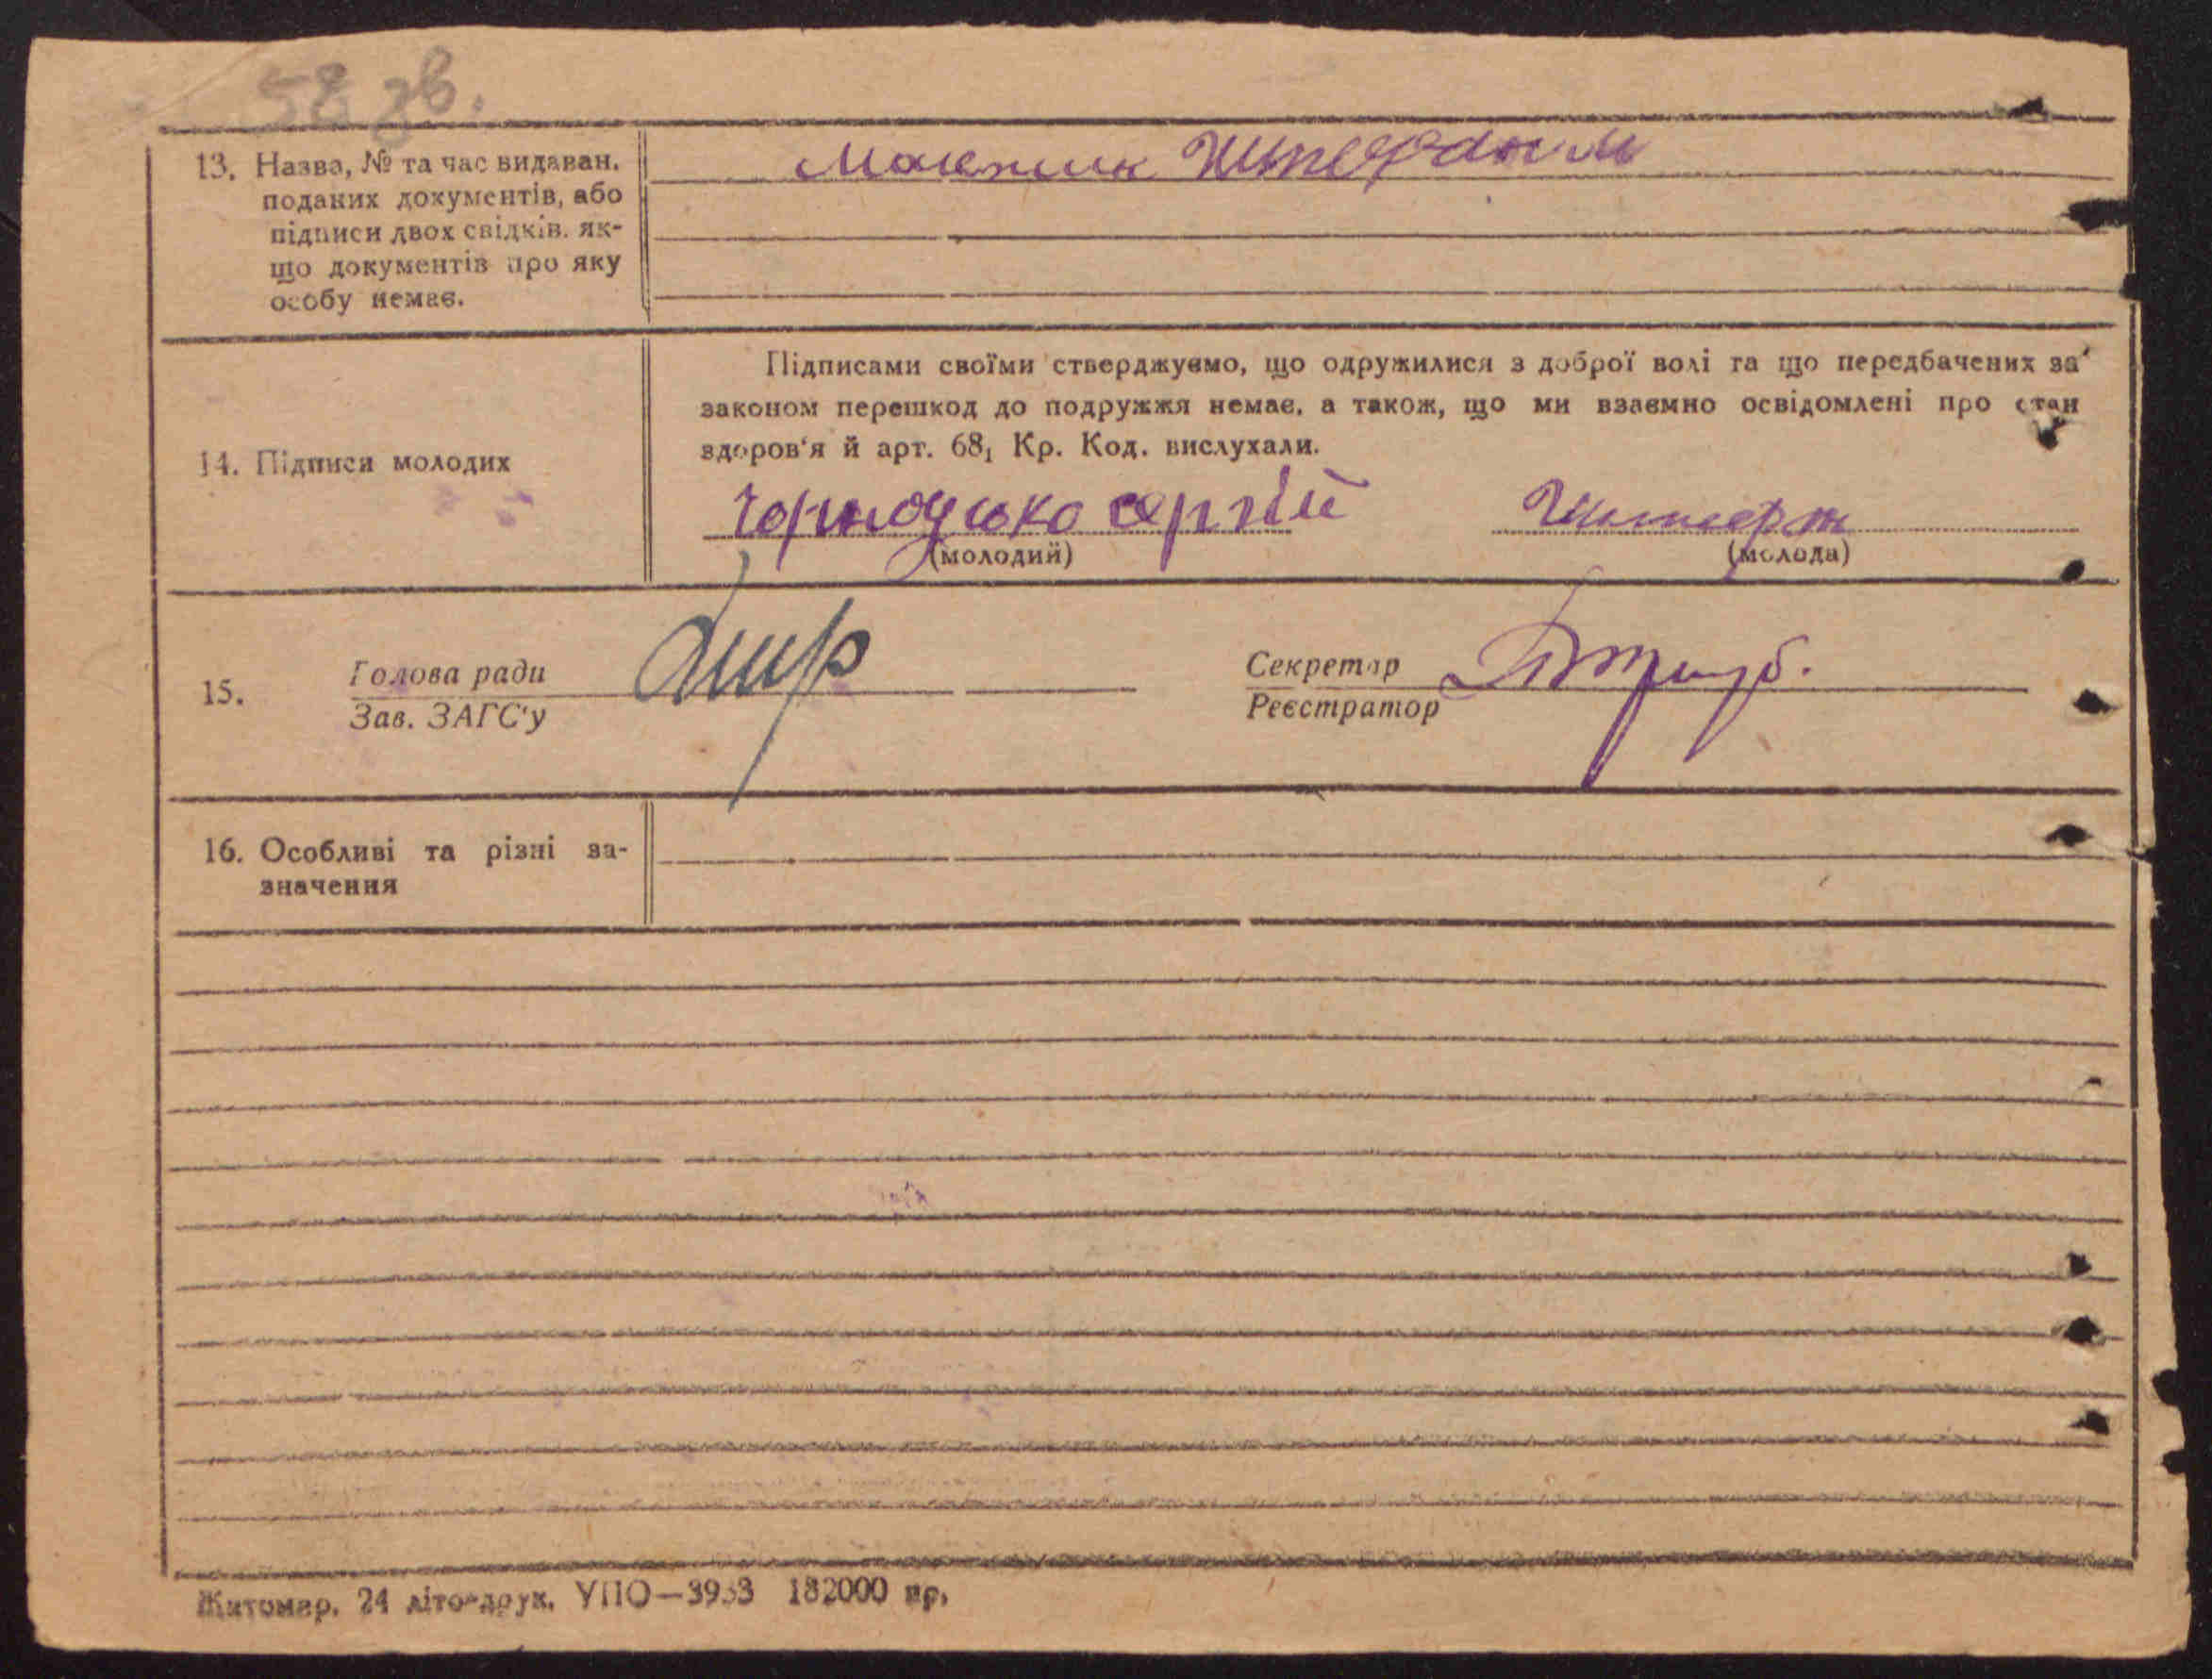 58 зв.
13. Назва, № та час видаван.
поданих документів, або
підписи двох свідків, як-
що документів про яку
особу немає.
Підписами своїми стверджуємо, що одружилися з доброї волі та що передбачених за
законом перешкод до подружжя немає, а також, що ми взаємно освідомлені про стан
здоров'я й арт. 68₁ Кр. Код. вислухали.
14. Підписи молодих
сергій
(молодий) (молода)
15. Голова ради
Зав. ЗАГС'у
Секретар
Реєстратор
16. Особливі та різні за-
значення
Житомир. 24 літо-друк. УПО—3933 182000 пр.